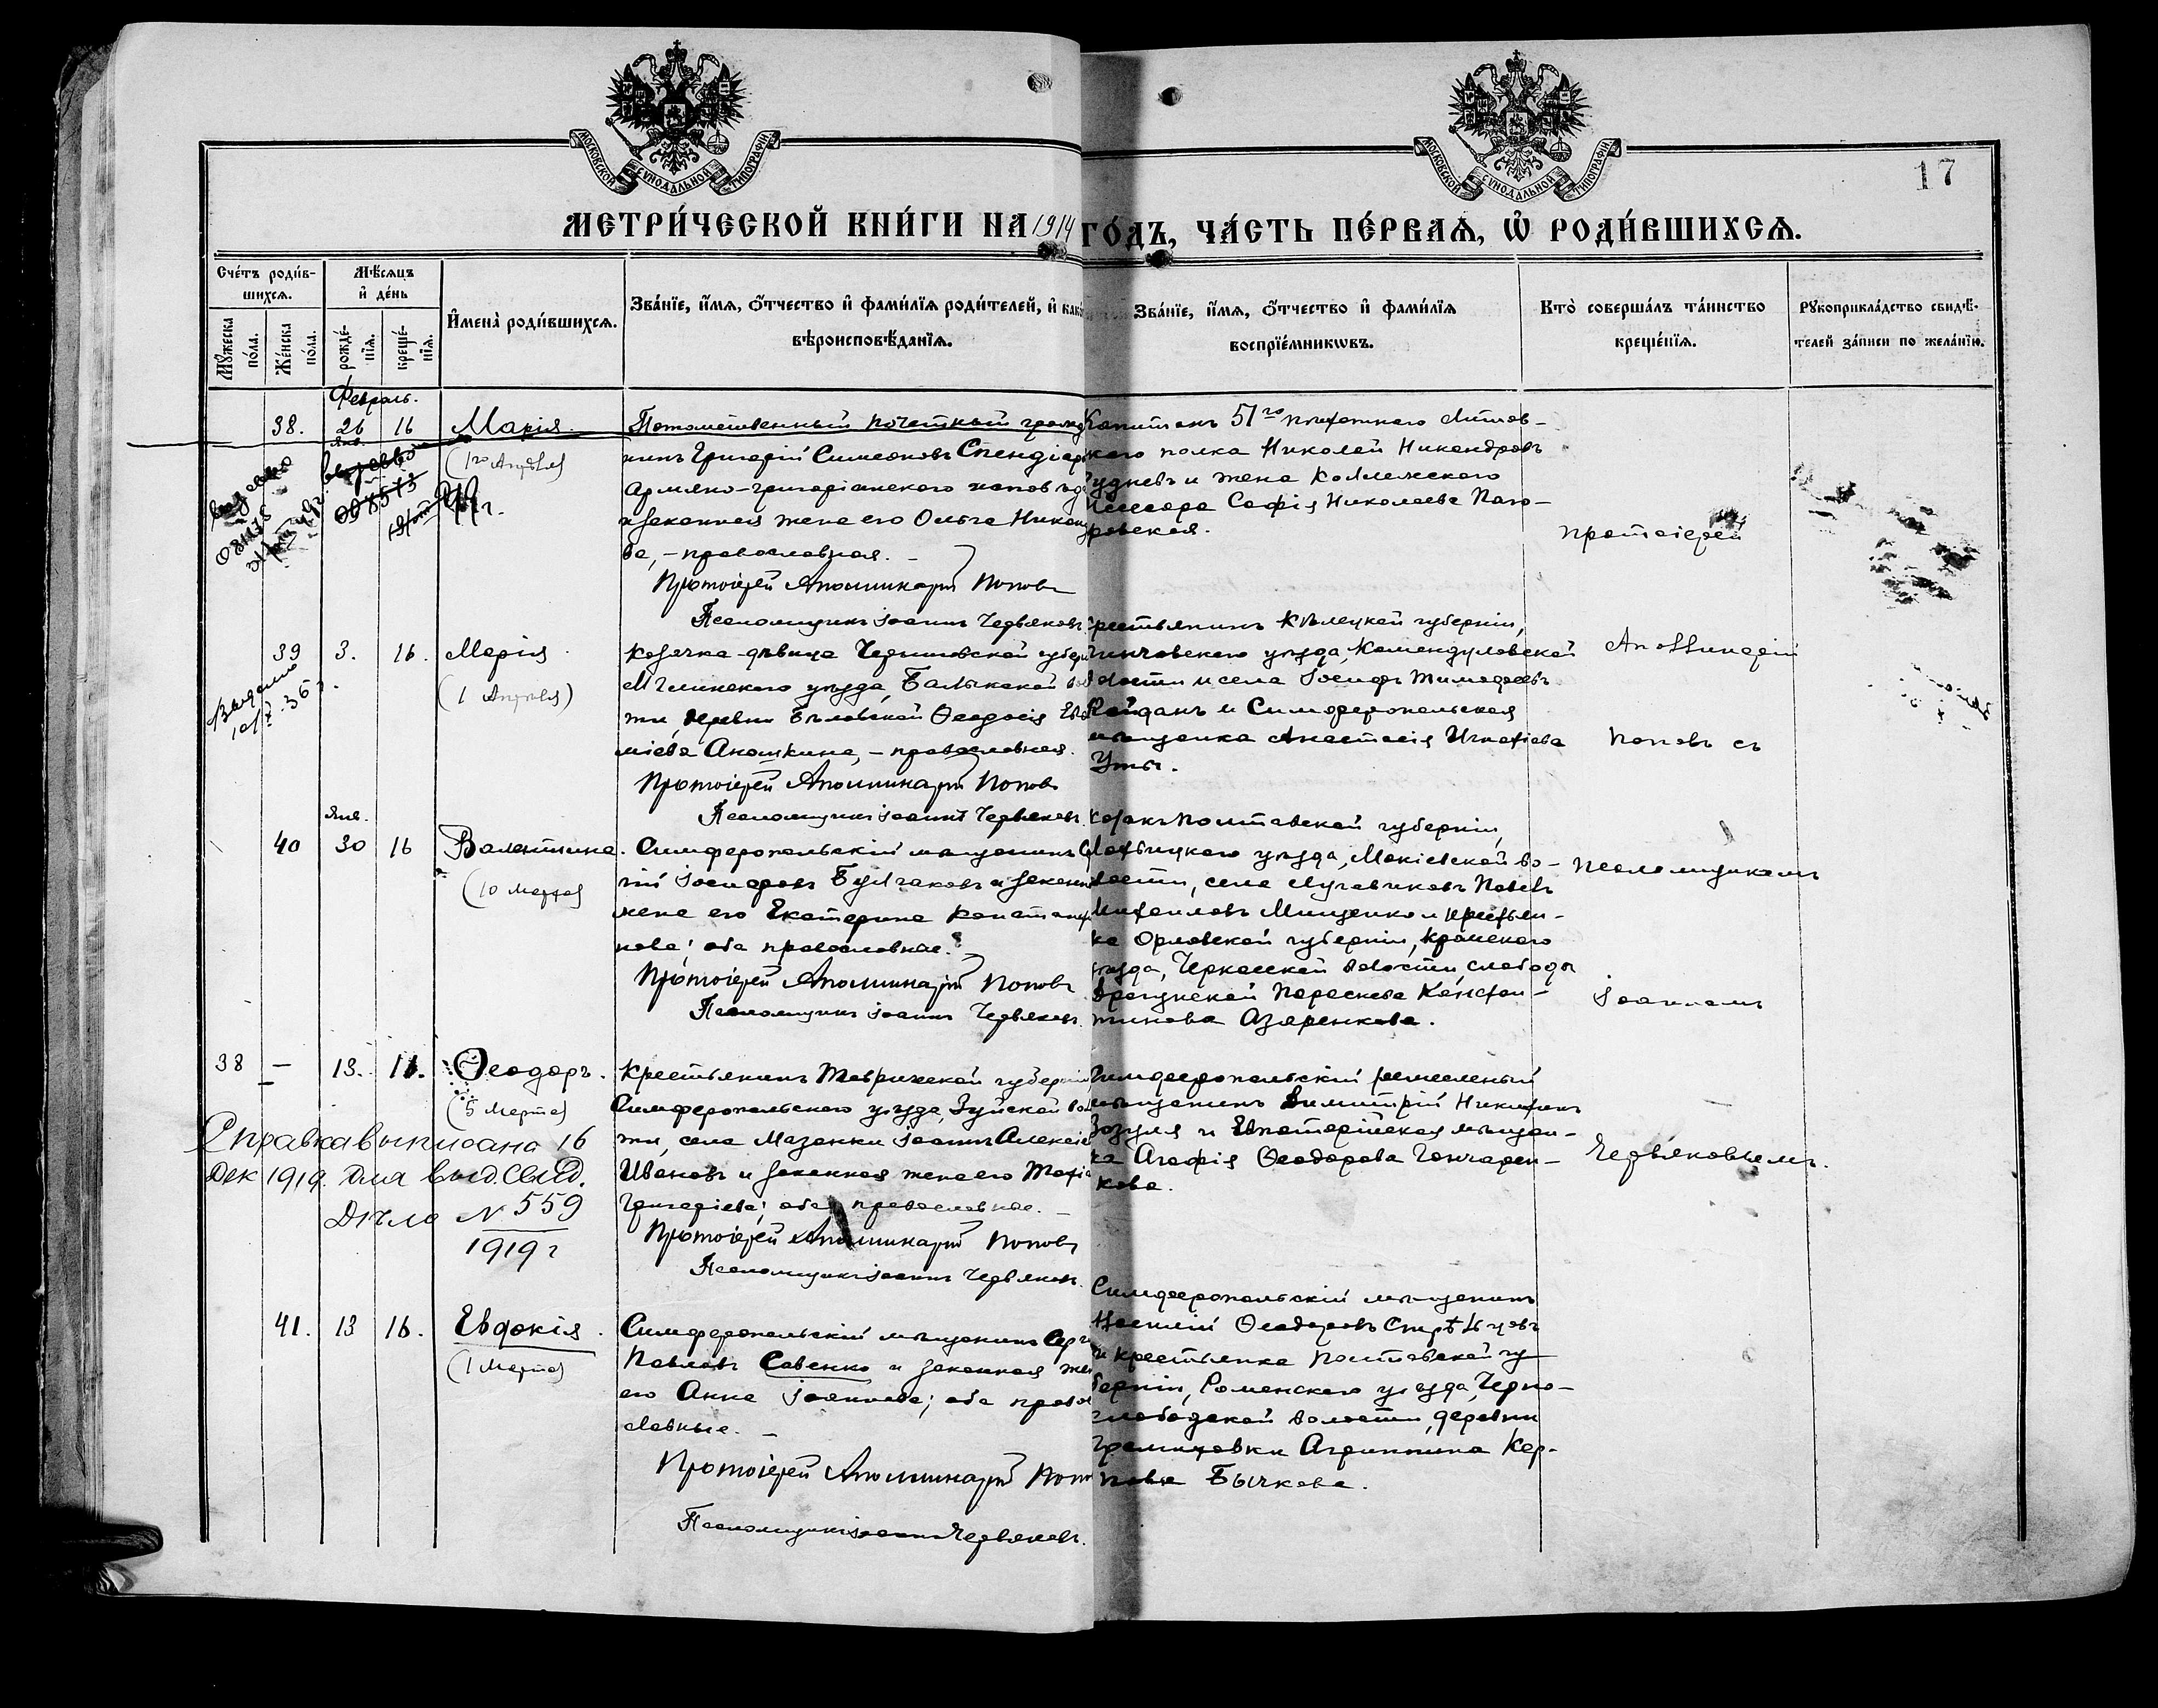 МОСКОВСКОЙ СѴНОДАЛЬНОЙ ТИПОГРАФІИ
МОСКОВСКОЙ СѴНОДАЛЬНОЙ ТИПОГРАФІИ
17
МЕТРИ́ЧЕСКОЙ КНИ́ГИ НА 1914 ГО́ДЪ, ЧА́СТЬ ПЕ́РВАѦ, Ѡ҆ РОДИ́ВШИХСѦ.
Сче́тъ роди́в-
шихсѧ.
Мꙋ́жеска по́ла.
Же́нска по́ла.
Мѣ́сѧцъ
и҆ де́нь
рожде́-
нїѧ.
креще́-
нїѧ.
И҆мена̀ роди́вшихсѧ.
Зва́нїе, и҆́мѧ, ѻ҆́тчество и҆ фами́лїѧ роди́телей, и҆ како́
вѣроисповѣ́данїѧ.
Зва́нїе, и҆́мѧ, ѻ҆́тчество и҆ фами́лїѧ
воспрїе́мникωвъ.
Кто̀ соверша́лъ та́инство
креще́нїѧ.
Рꙋкоприкла́дство свидѣ́-
телей за́писи по жела́нїю.
Февраль.
38. 26 16 Марія.
Янв.
(1го Апрѣля)
Потомственный почетный гражда
нинъ Григорій Симеоновъ Спендіаро
Армяно-григоріанскаго исповѣд
и законная жена его Ольга Никан
ва, – православная. –
Протоіерей Аполлинарій Поповъ
Псаломщикъ Іоаннъ Червяковъ.
Капитанъ 51го пѣхотнаго Литов-
скаго полка Николай Никандровъ
и жена Коллежскаго
Ассесора Софія Николаева Паго-
ровская.
39 3. 16. Марія.
(1 Апрѣля)
Козачка-дѣвица Черниговской губер
Мглинскаго уѣзда, Балыкской во
ти, деревни Бѣловской Ѳеодосія Ев
міева Аношкина, – православная.
Протоіерей Аполлинарій Поповъ
Псаломщикъ Іоаннъ Червяковъ.
Крестьянинъ Кѣлецкой губерніи,
Пинчовскаго уѣзда,
волости и села Іосифъ Тимофеевъ
Гайданъ и Симферопольская
мѣщанка Анастасія Игнатіева
Янв.
40 30 16 Валентина.
(10 Марта)
Симферопольскій мѣщанинъ
гій Іосифовъ Булгаковъ и законн
жена его Екатерина Констант
нова; оба православные. –
Протоіерей Аполлинарій Поповъ
Псаломщикъ Іоаннъ Червяковъ.
Козакъ Полтавской губерніи,
Лохвицкаго уѣзда, во-
лости, села Лучавиковъ Павелъ
Михаиловъ Мищенко и крестьян-
ка Орловской губерніи, Кромскаго
уѣзда, Черкасской волости, слободы
Драгунской Параскева Констан-
тинова Азаренкова.
38 – 13. 16. Ѳеодоръ.
(5 Марта)
Справка выписана 16
Дек 1919. для выд. свид.
Дѣло № 559
1919 г
Крестьянинъ Таврической губерніи,
Симферопольскаго уѣзда, Зуйской вол
ти, села Мазанки Іоаннъ Алексіе
Ивановъ и законная жена его
Григоріева; оба православные. –
Протоіерей Аполлинарій Поповъ
Псаломщикъ Іоаннъ Червяковъ.
Симферопольскій ремесленный
мѣщанинъ Димитрій Никитинъ
Зозуля и Евпаторійская мѣщан-
ка Агафія Ѳеодорова Гончарен-
кова.
41. 13 16. Евдокія.
(1 Марта)
Симферопольскій мѣщанинъ Сер
Павловъ Савенко и законная же
его Анна Іоаннова; оба правос
лавные. –
Протоіерей Аполлинарій Поп
Псаломщикъ Іоаннъ Червяковъ.
Симферопольскій мѣщанинъ
Ѳеодоровъ Стрѣльцовъ
и крестьянка Полтавской гу-
берніи, Роменскаго уѣзда, Черно-
слободской волости, деревни
Агриппина Кар-
пова Бычкова.
протоіерей
Аполлинарій
Поповъ съ
псаломщикомъ
Іоанномъ
Червяковымъ.